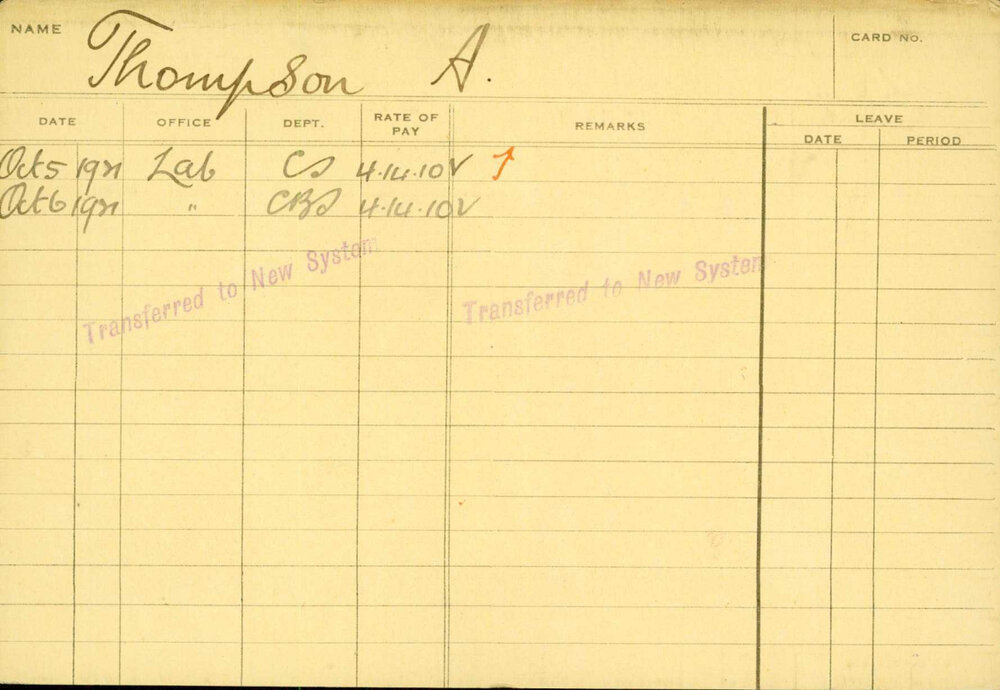 NAME Thompson A. CARD NO.
DATE OFFICE DEPT. RATE OF PAY REMARKS LEAVE
DATE PERIOD
Oct 5 1921 Lab CS 4.14.10 V
Oct 6 1921 " CBS 4.14.10 V
Transferred to New System Transferred to New System